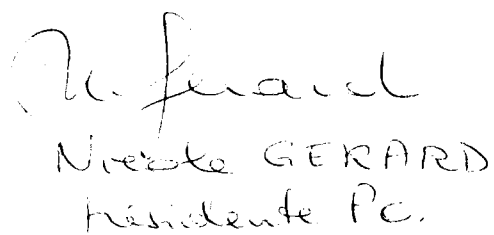 N. Gerard
Nicole GERARD
présidente Pc.